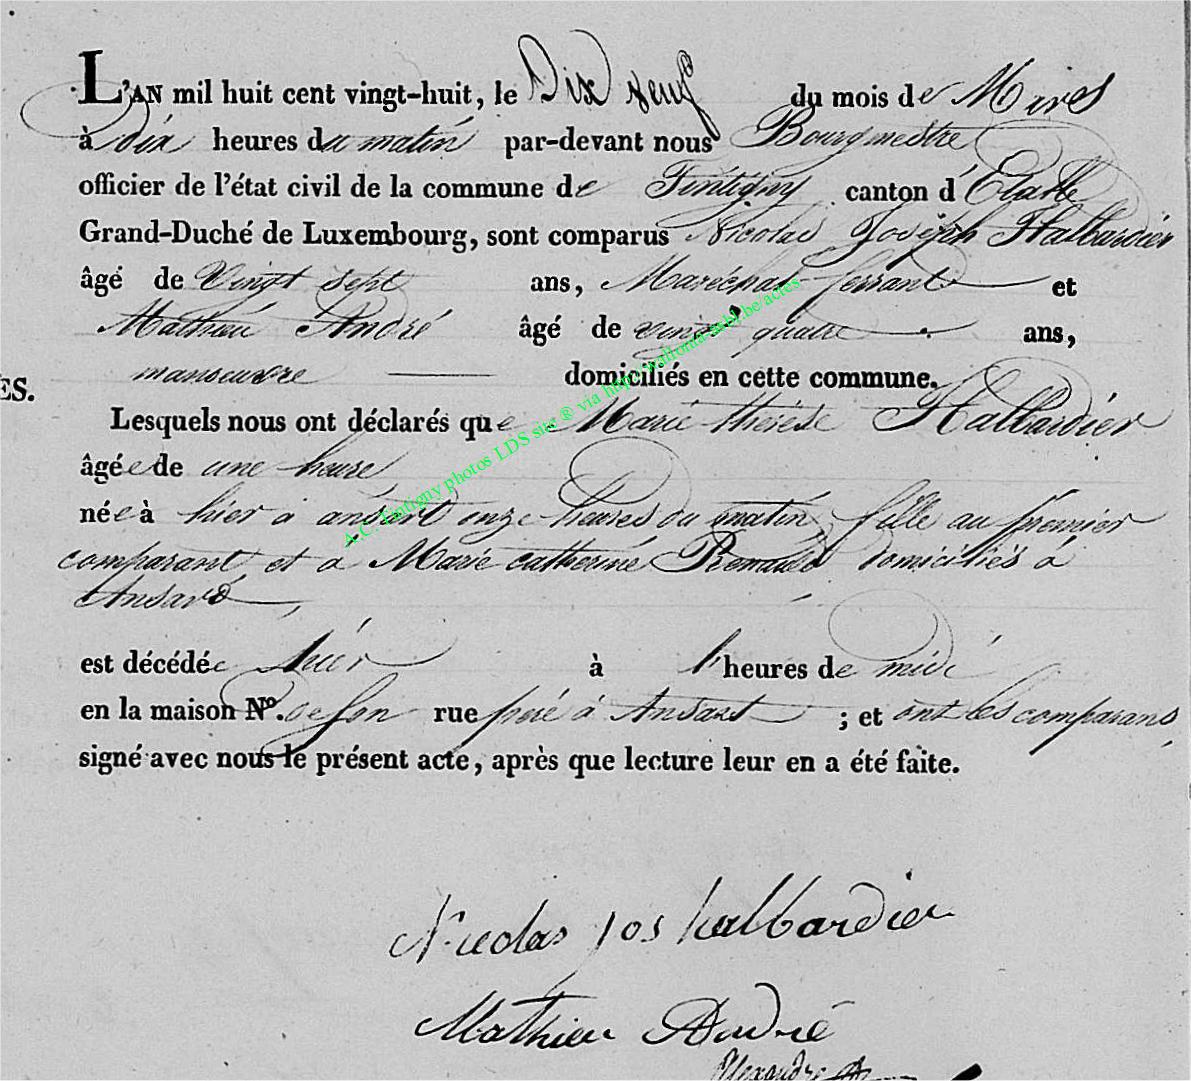 L'AN mil huit cent vingt-huit, le Dix neuf du mois de Mars
à dix heures du matin par-devant nous Bourgmestre
officier de l'état civil de la commune de Tintigny canton d'Etalle
Grand-Duché de Luxembourg, sont comparus Nicolas Joseph Halbardier
âgé de vingt sept ans, Maréchal ferrant et
Mathieu André âgé de vingt quatre ans,
manoeuvre domiciliés en cette commune.
ES.
Lesquels nous ont déclarés que Marie thérèse Halbardier
âgée de une heure
née à hier à ansart onze heures du matin fille au premier
comparant et à Marie catherine Renauld domiciliés à
Ansard
est décédée hier à l'heures de midi
en la maison N°. de son rue père à Ansart ; et ont les comparans
signé avec nous le présent acte, après que lecture leur en a été faite.
A.C. Tintigny photos LDS sur ® via http://wallonia-asbl.be/actes
Nicolas Jos halbardier
Mathieu André
Alexandre